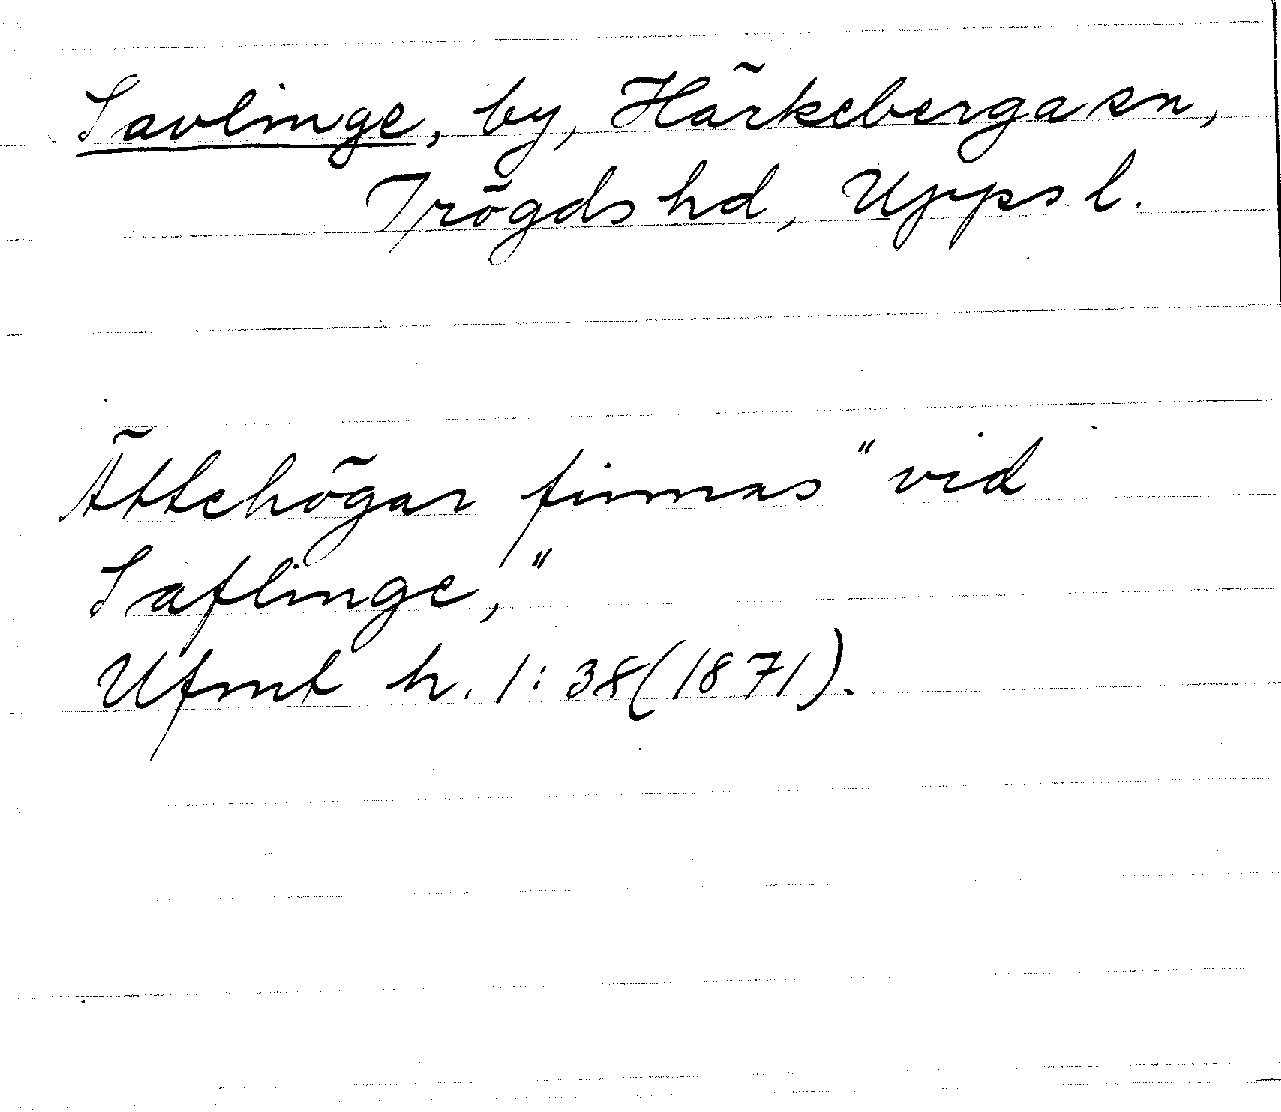 Savlinge, by, Härkeberga sn,
Trögds hd, Upps l.
Ättehögar finnas "vid
Saflinge,"
Ufmt h. 1:38(1871).